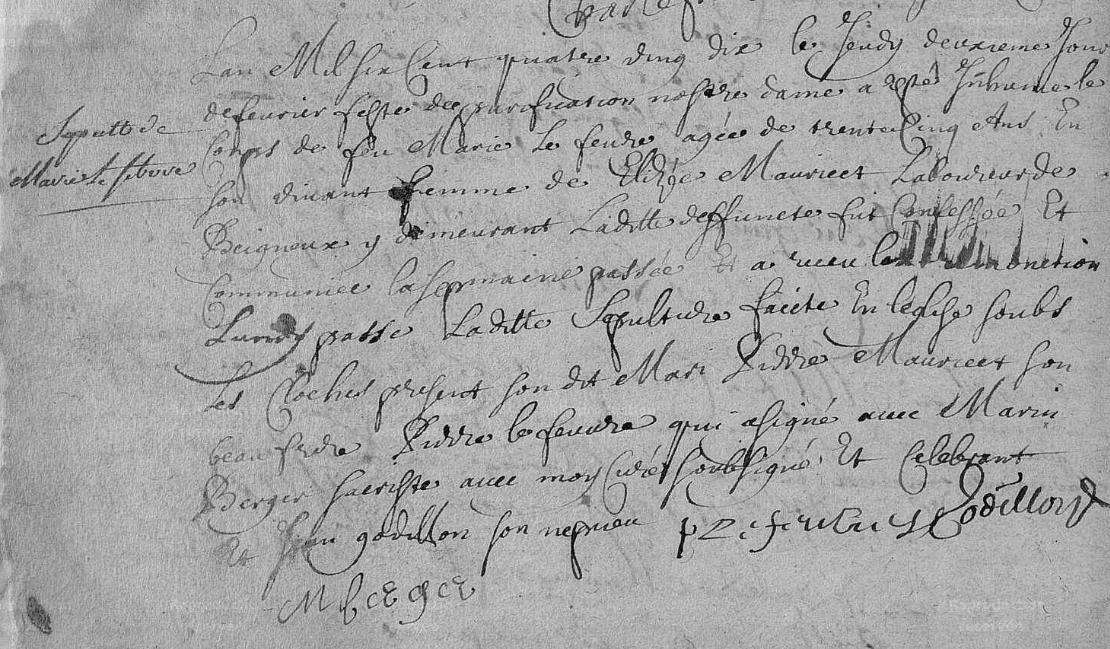 Sepult. de
Marie Le febvre
Lan Mil six Cent quatre vingt dix le Jeudy deuxieme Jour
de fevrier feste de purification nostre dame a esté Inhumé le
Corps de feu Marie Le feuvre agée de trente cinq Ans En
son vivant femme de Elizée Mauricet Laboureur de
Beigneux y demeurant Laditte deffuncte fut Confessée Et
Communiee la sepmaine passée Et a receu
Lundy passe Laditte Sepulture faicte En leglise soubs
Les Cloches present son dit Mari Pierre Mauricet son
beau frere Pierre le feuvre qui a signé avec Marin
Berger sacriste avec moy Curé soubsigné Et Celebrant
Et Jean godillon son nepveu